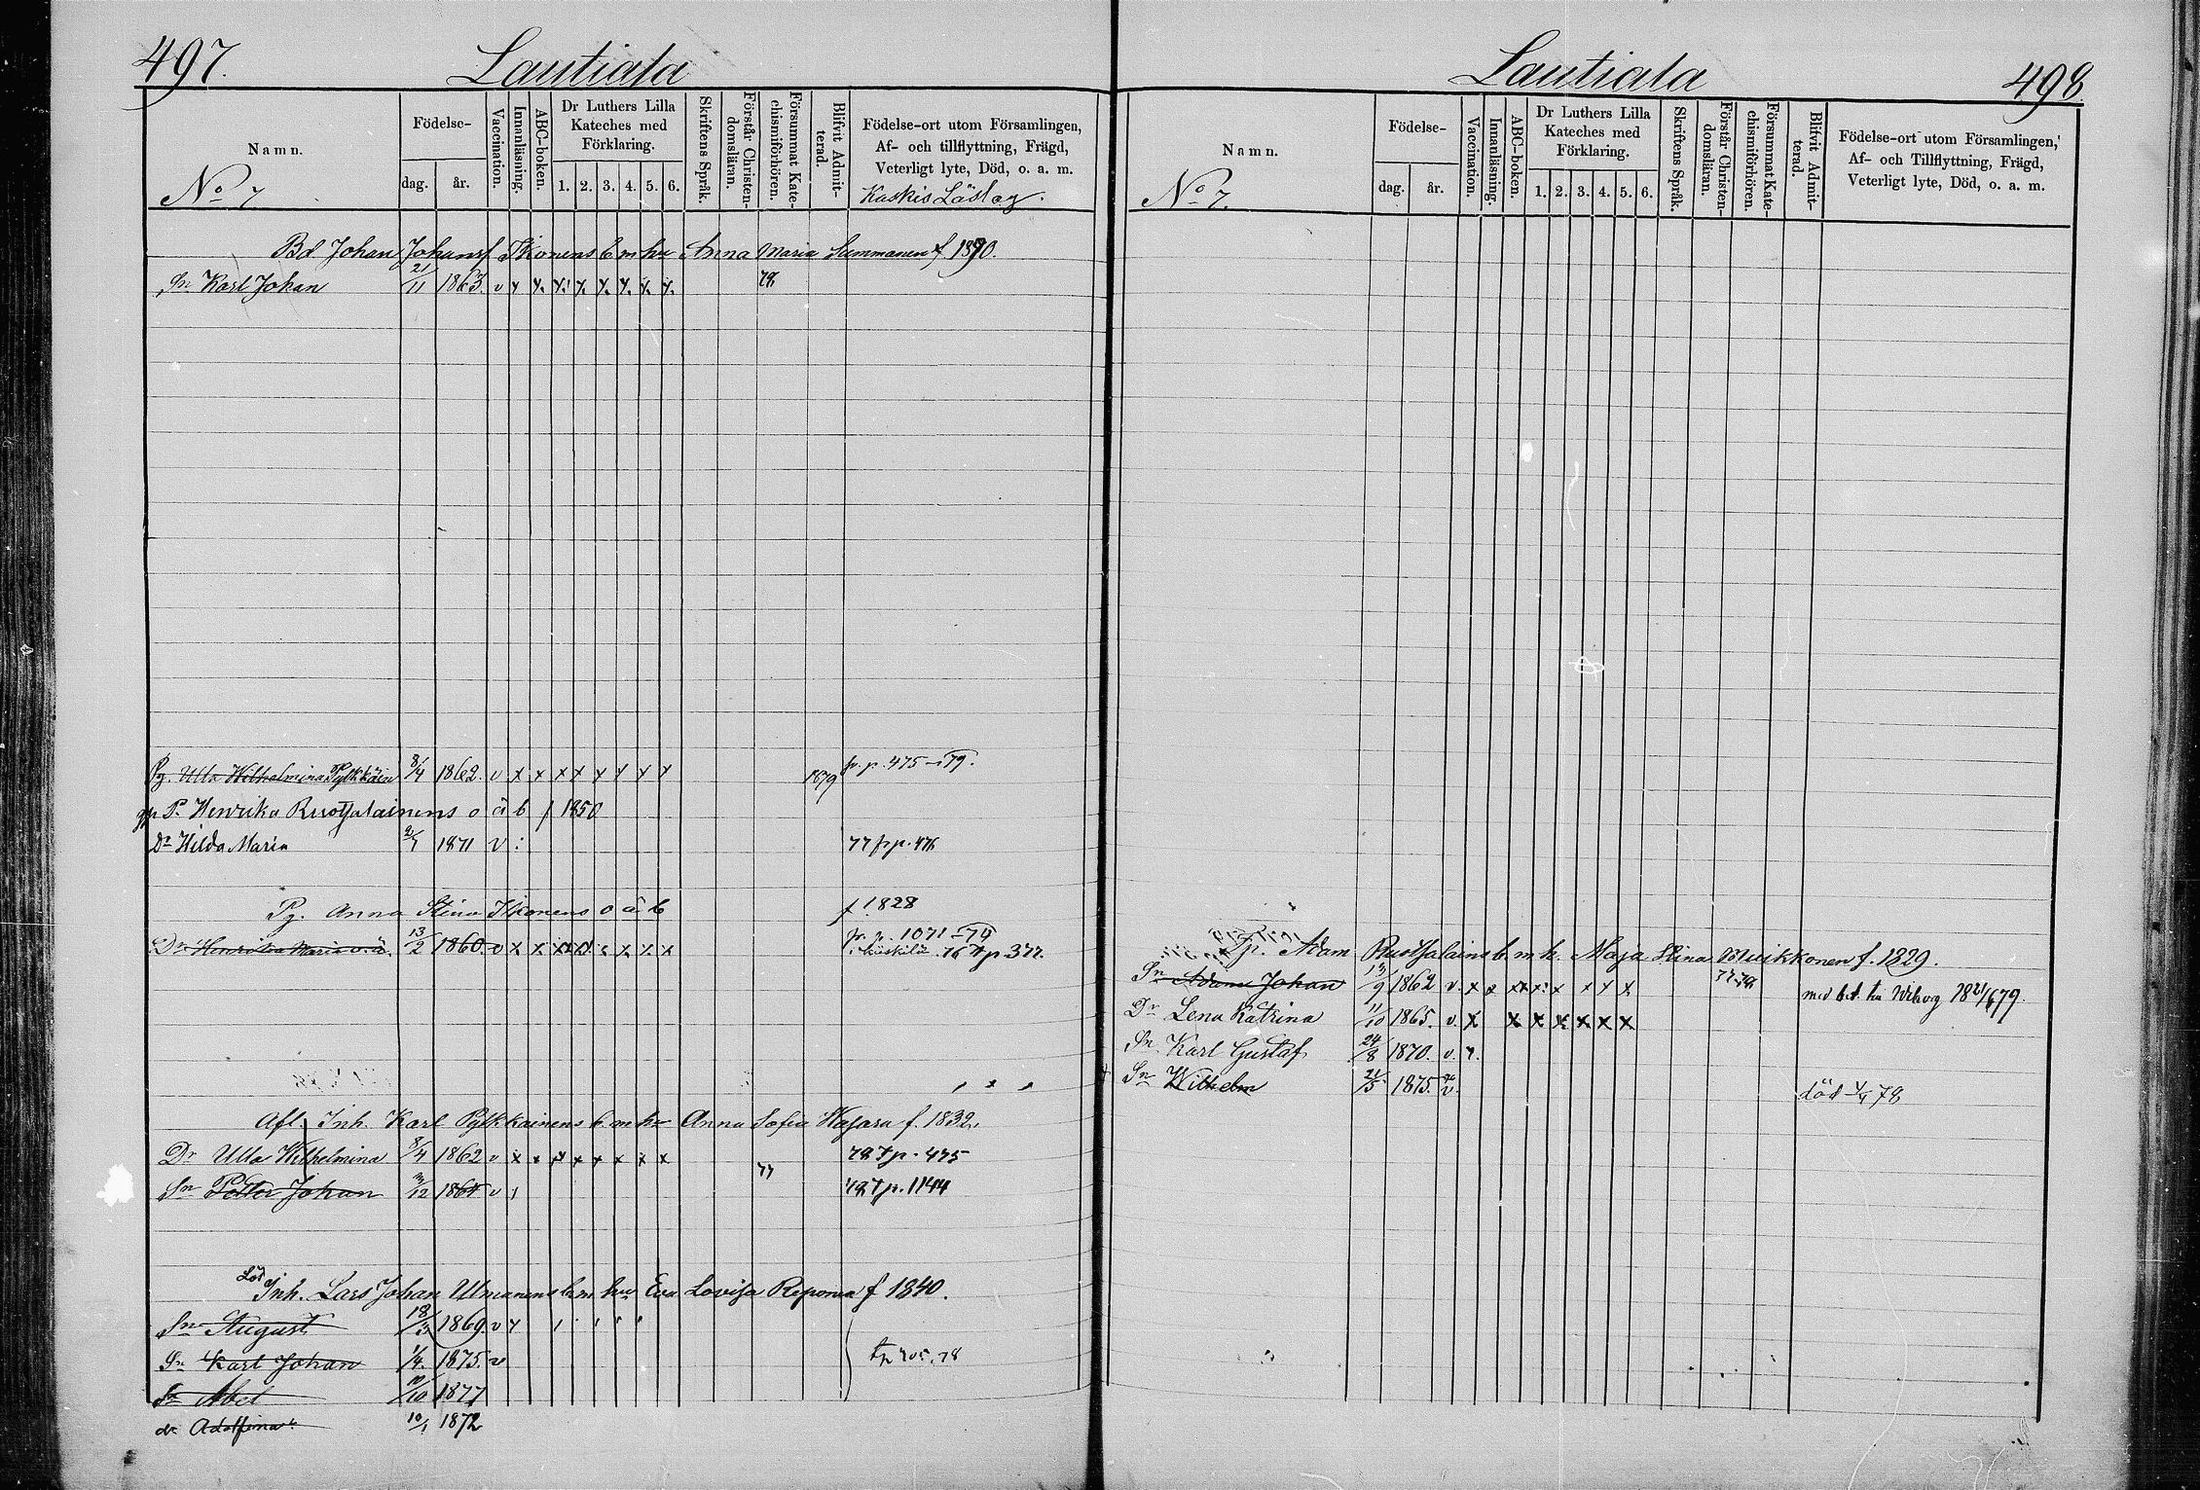 497.
Lautiala
Namn.
Födelse-
dag.
år.
Vaccination.
Innanläsning.
ABC-boken.
Dr Luthers Lilla
Kateches med
Förklaring.
1. 2. 3. 4. 5. 6.
Skriftens Språk.
Förstår Christen-
domsläran.
Försummat Kate-
chismiförhören.
Blifvit Admit-
terad.
Födelse-ort utom Församlingen,
Af- och tillflyttning, Frägd,
Veterligt lyte, Död, o. a. m.
No 7
Kaskis Läslag.
Bd Johan Johansf Ikonens b m hu Anna Maria Summanen f
Sn Karl Johan 21/11 1863. v x x. x. x. x. x. x. x. 78
Pg. Ulla Wilhelmina Pylkkäin 8/4 1862. v x x x x x x x x 1879 fr. p. 475 - 79.
P. Henrika Ruotsalainens o ä b f 1850
Dr Hilda Maria 1871 v 77 fr p. 476
Pg. Anna Stina Ikonens o ä b f 1828
Dr Henrika Maria o. ä. 13/2 1860. v x x fr. p. 1071 - 79
p 377.
Afl. Inh. Karl Pylkkäinens b. m hu Anna Sofia f. 1832.
Dr Ulla Wilhelmina 8/4 1862 v x x x x x x x x 78 T p. 475
Sn Petter Johan 1864 v 77 78 T p. 1144
Inh. Lars Johan Ulmanens b m hu Eva Lovisa Reponen f 1840.
Sn August 1869. v
Sn Karl Johan 1/4. 1875. v
Sn Abel 10/10 1877
dr Adolfina 10/1 1872
Lautiala
498
Namn.
Födelse-
dag.
år.
Vaccination.
Innanläsning.
ABC-boken.
Dr Luthers Lilla
Kateches med
Förklaring.
1. 2. 3. 4. 5. 6.
Skriftens Språk.
Förstår Christen-
domsläran.
Försummat Kate-
chismiförhören.
Blifvit Admit-
terad.
Födelse-ort utom Församlingen,
Af- och Tillflyttning, Frägd,
Veterligt lyte, Död, o. a. m.
No 7.
Adam Ruotsalains b. m. h. Maja Stina Muikkonen f. 1829.
Sn Adam Johan 13/9 1862 v. x x x x x x x x 77.78 med bet. till Wiborg 18 21/6 79.
Dr Lena Katrina 11/10 1865. v. x x x x x x x
Sn Karl Gustaf 24/8 1870. v.
Sn Wilhelm 21/5 1875 v. död 78